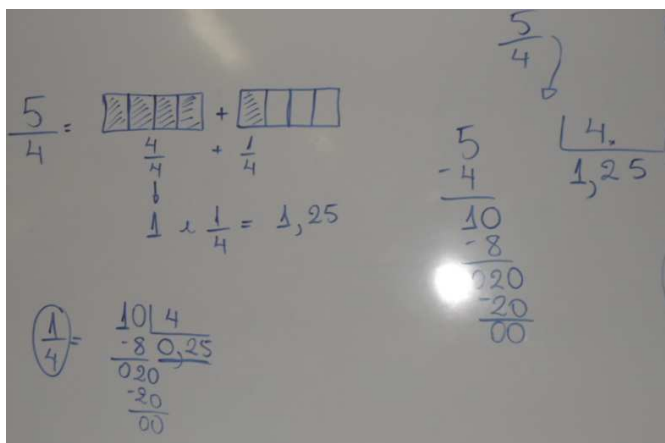 5/4 = +
4/4 + 1/4
1 e 1/4 = 1,25
1/4 =
10 | 4
-8 0,25
020
-20
00
5/4
5 | 4
-4 1,25
10
-8
020
-20
00